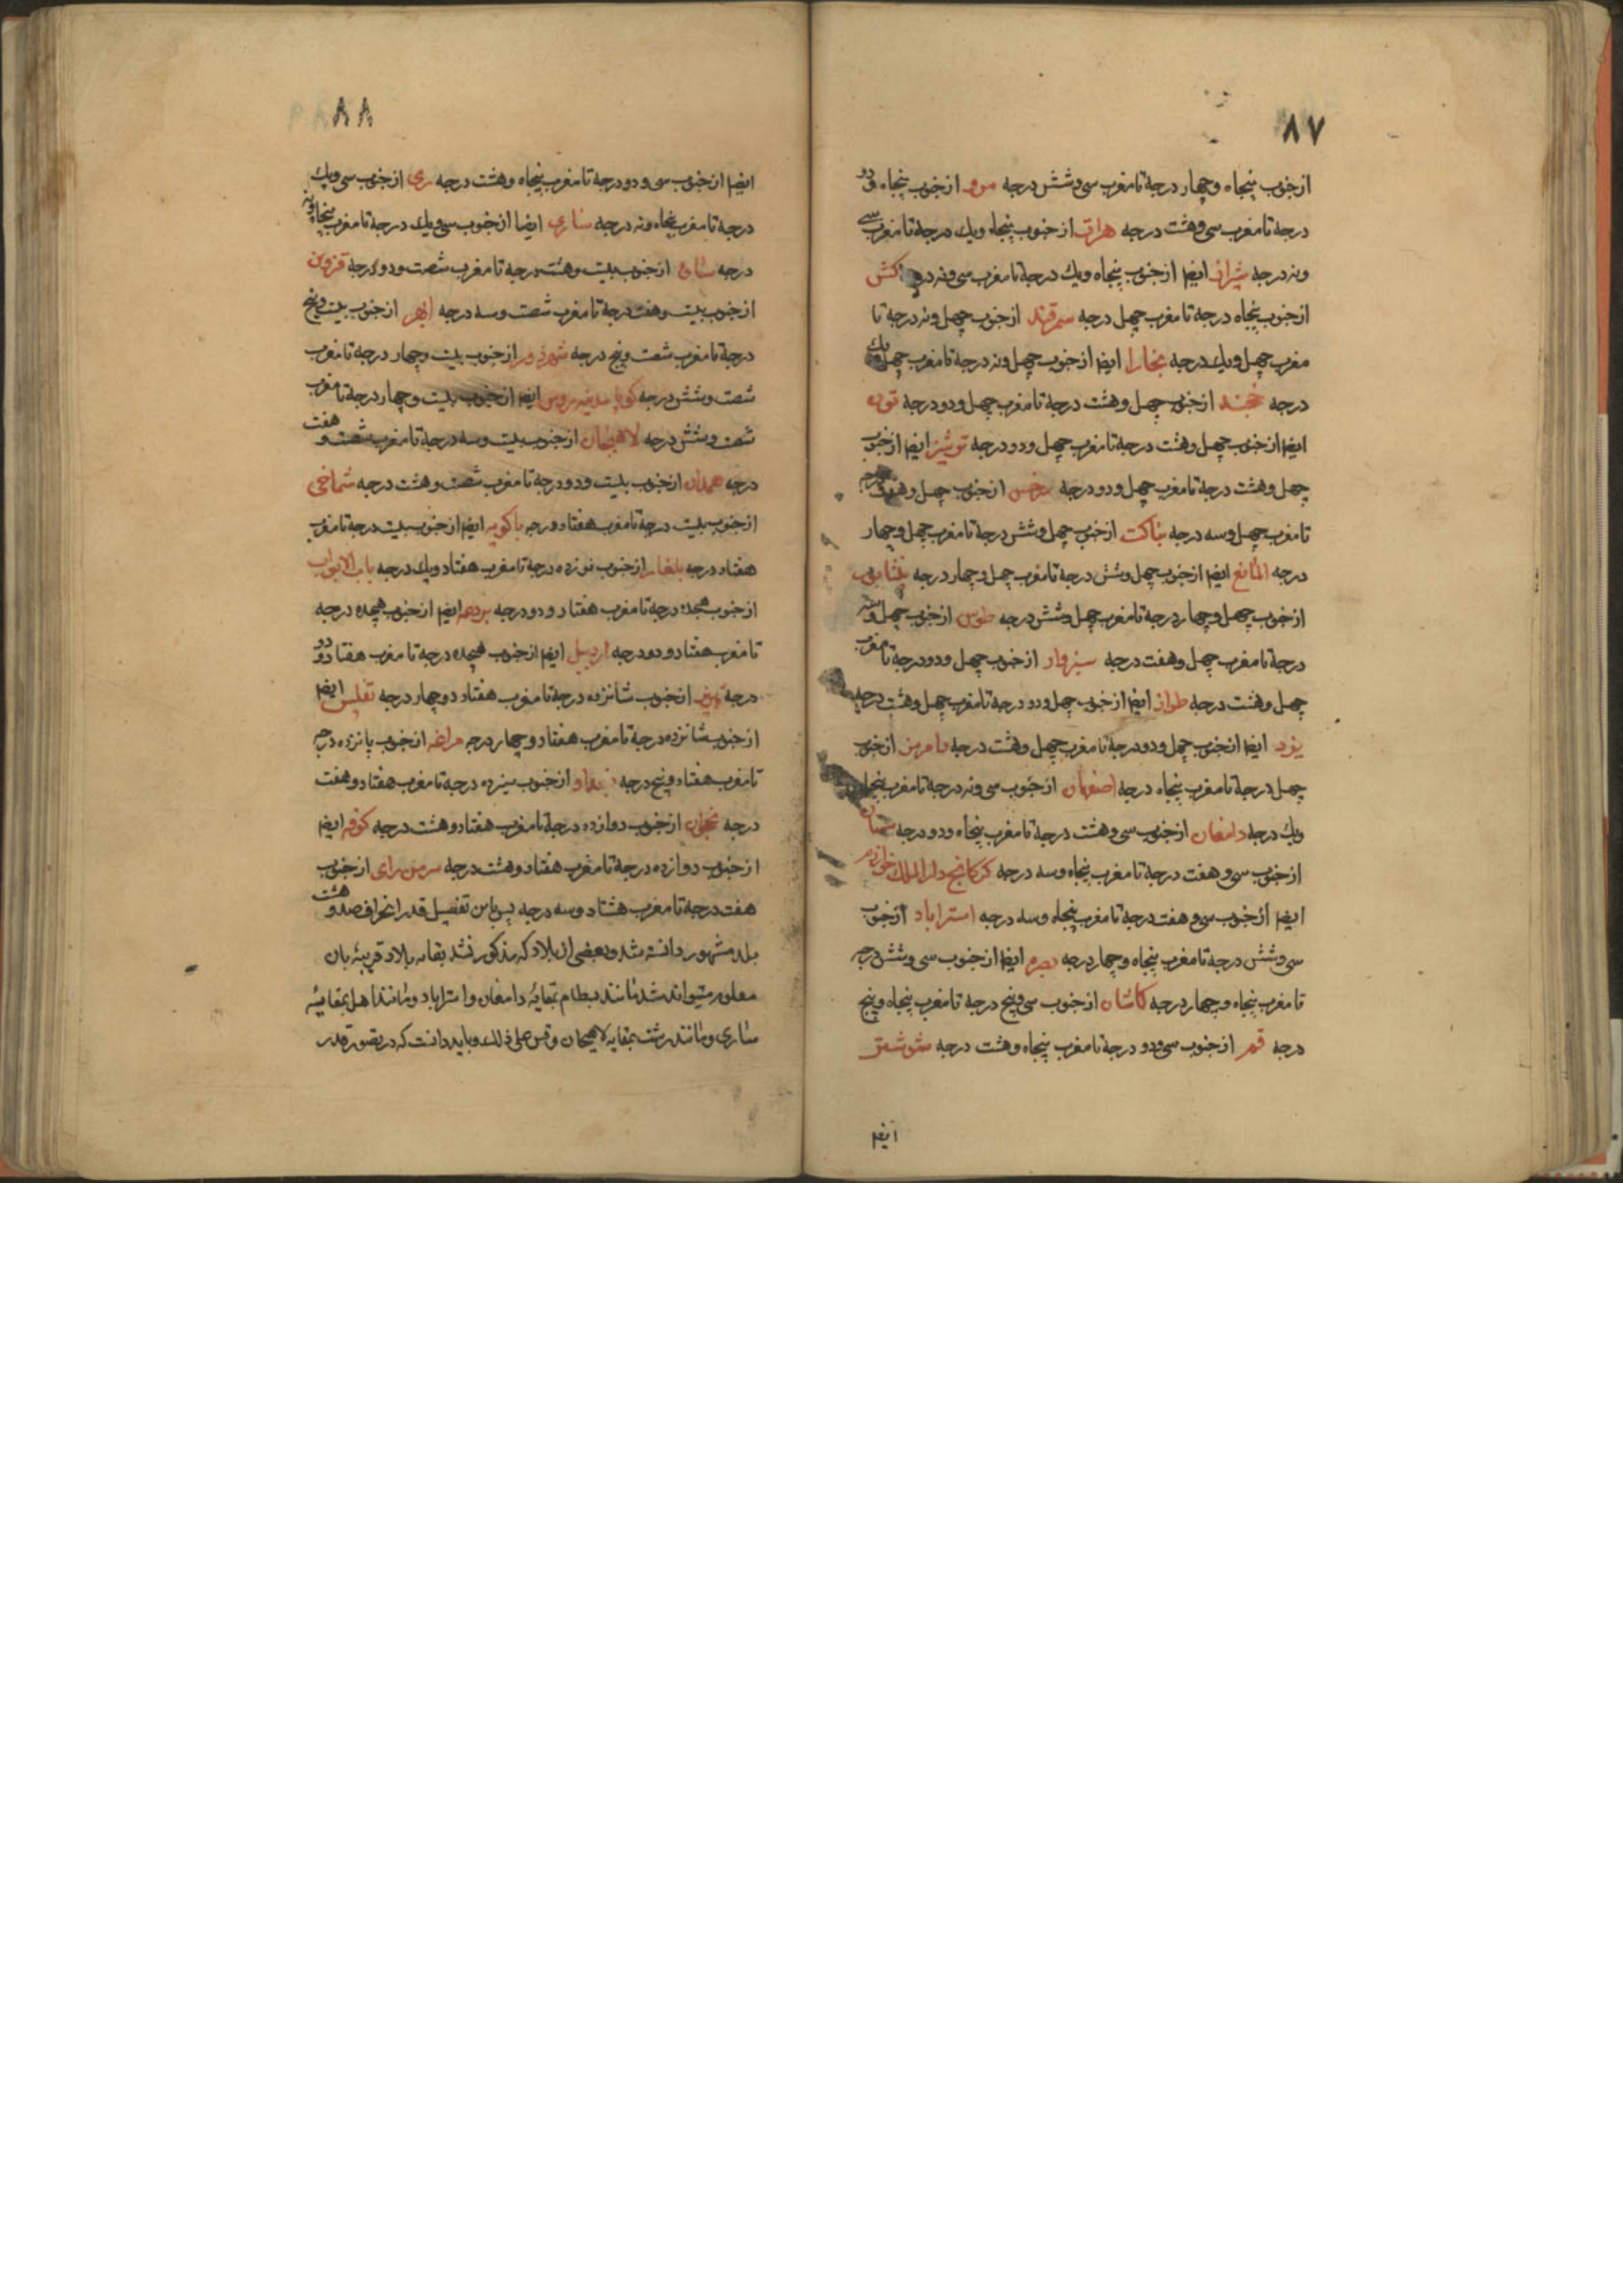 ٨٧
از جنوب پنجاه و چهار درجة تا مغرب سی و شش درجه مرو از جنوب پنجاه و دو
درجة تا مغرب سی و هشت درجه هرات از جنوب پنجاه ویك درجة تا مغرب سی
ونه درجه شیراز ایضا از جنوب پنجاه ویك درجة تا مغرب سی ونه درجه کش
از جنوب پنجاه درجة تا مغرب چهل درجه سمرقند از جنوب چهل ونه درجة تا
مغرب چهل ویك درجه بخارا ایضا از جنوب چهل ونه درجة تا مغرب چهل ویك
درجه خجند از جنوب چهل وهشت درجة تا مغرب چهل ودو درجه تون
ایضا از جنوب چهل وهشت درجة تا مغرب چهل ودو درجه ترشیز ایضا از جنوب
چهل وهشت درجة تا مغرب چهل ودو درجه سرخس از جنوب چهل وهفت درجه
تا مغرب چهل وسه درجه بناکت از جنوب چهل وشش درجة تا مغرب چهل وچهار
درجه المالغ ایضا از جنوب چهل وشش درجة تا مغرب چهل وچهار درجه نیشابور
از جنوب چهل وچهار درجة تا مغرب چهل وشش درجه طوس از جنوب چهل وسه
درجة تا مغرب چهل وهفت درجه سبزوار از جنوب چهل ودو درجة تا مغرب
چهل وهشت درجه طراز ایضا از جنوب چهل ودو درجة تا مغرب چهل وهشت درجه
یزد ایضا از جنوب چهل ودو درجة تا مغرب چهل وهشت درجه از جنوب
چهل درجة تا مغرب پنجاه درجه اصفهان از جنوب سی ونه درجة تا مغرب پنجاه
ویك درجه دامغان از جنوب سی وهشت درجة تا مغرب پنجاه ودو درجه سمنان
از جنوب سی وهفت درجة تا مغرب پنجاه وسه درجه کرکانج دار الملك خوارزم
ایضا از جنوب سی وهفت درجة تا مغرب پنجاه وسه درجه استراباد از جنوب
سی وشش درجة تا مغرب پنجاه وچهار درجه بصره ایضا از جنوب سی وشش درجه
تا مغرب پنجاه وچهار درجه کاشان از جنوب سی وپنج درجة تا مغرب پنجاه وپنج
درجه قم از جنوب سی ودو درجة تا مغرب پنجاه وهشت درجه شوشتر
ایضا
٨٨
ایضا از جنوب سی و دو درجة تا مغرب پنجاه وهشت درجه ری از جنوب سی ویك
درجة تا مغرب پنجاه ونه درجه ساری ایضا از جنوب سی ویك درجة تا مغرب پنجاه ونه
درجه ساوه از جنوب بیست وهشت درجة تا مغرب شصت ودو درجه قزوین
از جنوب بیست وهفت درجة تا مغرب شصت وسه درجه ابهر از جنوب بیست وپنج
درجة تا مغرب شصت وپنج درجه شهرزور از جنوب بیست وچهار درجة تا مغرب
شصت وشش درجه ایضا از جنوب بیست وچهار درجة تا مغرب
شصت وشش درجه لاهیجان از جنوب بیست وسه درجة تا مغرب شصت و هفت
درجه همدان از جنوب بیست ودو درجة تا مغرب شصت وهشت درجه شماخی
از جنوب بیست درجة تا مغرب هفتاد درجه باکویه ایضا از جنوب بیست درجة تا مغرب
هفتاد درجه بلغار از جنوب نوزده درجة تا مغرب هفتاد ویك درجه باب الابواب
از جنوب هجده درجة تا مغرب هفتاد ودو درجه بردعه ایضا از جنوب هجده درجه
تا مغرب هفتاد ودو درجه اردبیل ایضا از جنوب هجده درجة تا مغرب هفتاد ودو
درجه تبریز از جنوب شانزده درجة تا مغرب هفتاد وچهار درجه تفلیس ایضا
از جنوب شانزده درجة تا مغرب هفتاد وچهار درجه مراغه از جنوب پانزده درجه
تا مغرب هفتاد وپنج درجه بغداد از جنوب سیزده درجة تا مغرب هفتاد وهفت
درجه نخجوان از جنوب دوازده درجة تا مغرب هفتاد وهشت درجه کوفه ایضا
از جنوب دوازده درجة تا مغرب هفتاد وهشت درجه سر من رای از جنوب
هفت درجة تا مغرب هشتاد وسه درجه پس باین تفصیل قدر انحراف صد و هشت
بلد مشهور دانسته شد وبعضی از بلاد که مذکور نشد بقایه بلاد قریبه بان
معلوم میتواند شد مانند بسطام بمقایه دامغان واستراباد ومانند امل بمقایه
ساری ومانند رشت بمقایه لاهیجان وقس علی ذلك وباید دانست که در تصور قدر